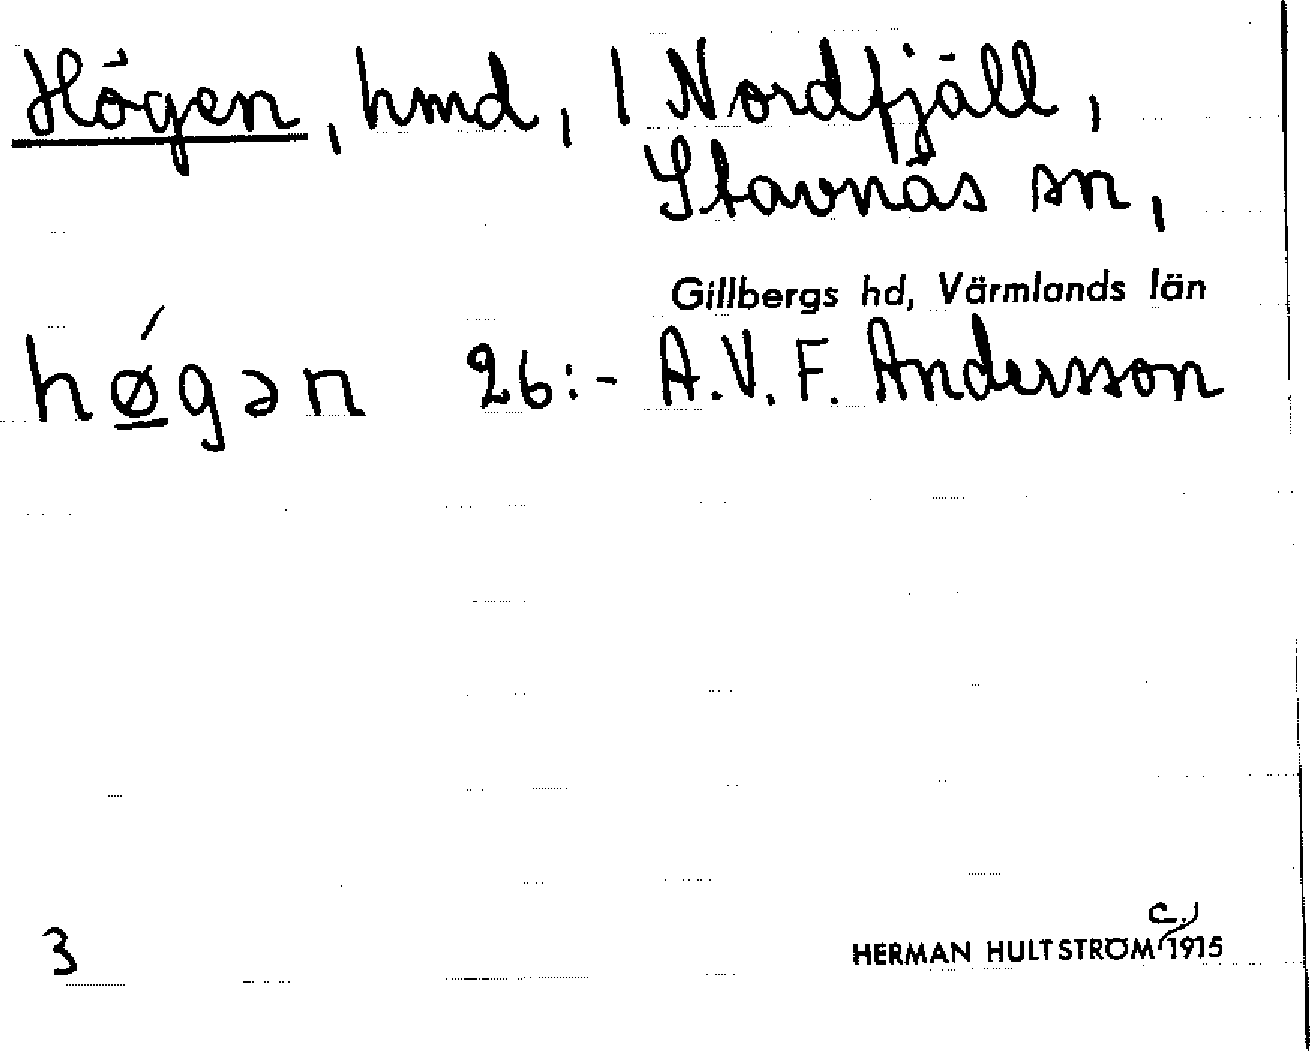 Högen, hmd, 1 Nordfjäll,
Stavnäs sn,
Gillbergs hd, Värmlands län
hǿ̲gən 26:- A.V.F. Andersson
3
c.
HERMAN HULTSTRÖM 1915